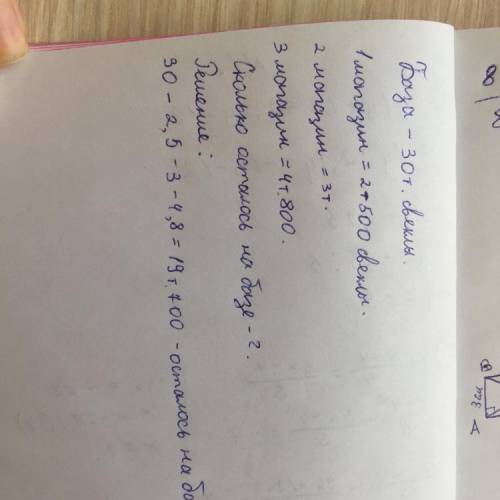 База - 30т. свеклы.
1 магазин = 2т500 свеклы.
2 магазин = 3т.
3 магазин = 4т.800.
Сколько осталось на базе - ?.
Решение:
30 - 2,5 - 3 - 4,8 = 19т.700 - осталось на ба
8
В
32м
А